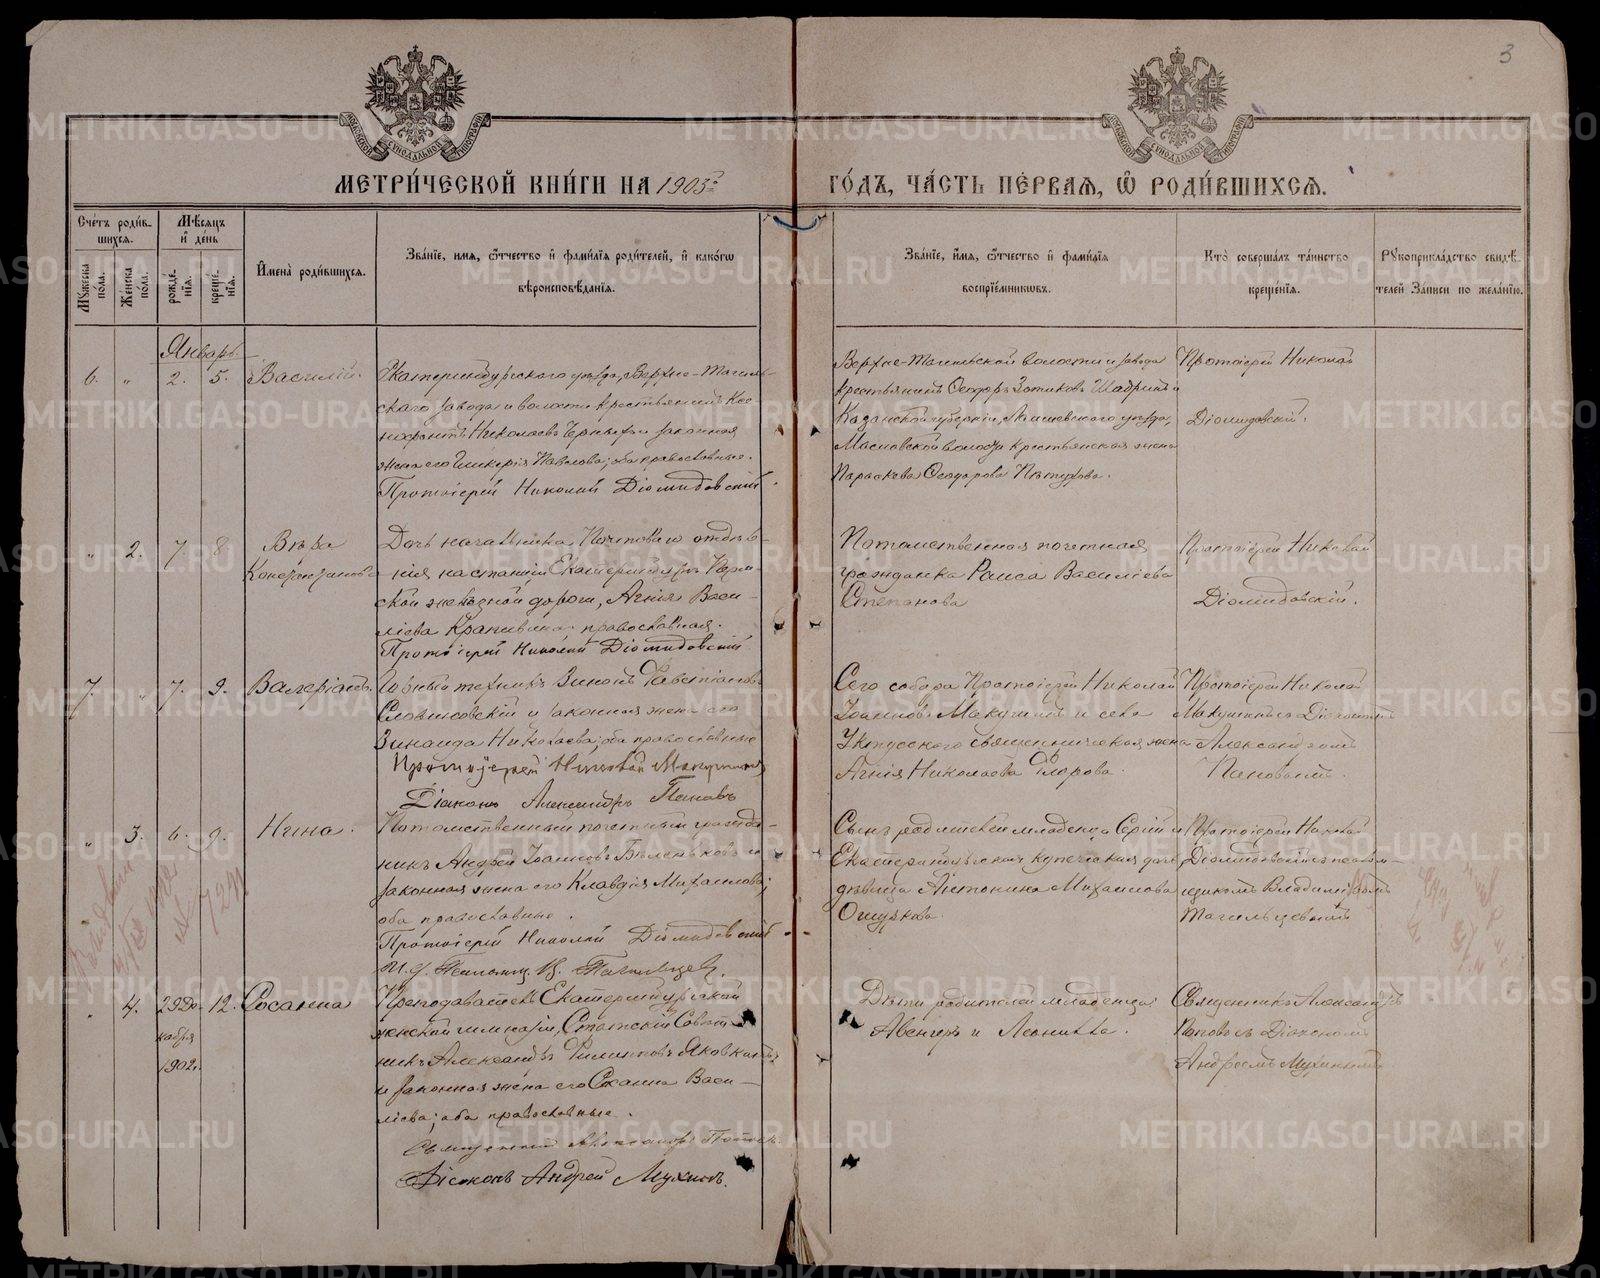 3
МЕТРИ́ЧЕСКОЙ КНИ́ГИ НА 1903й
ГО́ДЪ, ЧА́СТЬ ПЕ́РВАЯ, Ѡ РОДИ́ВШИХСѦ.
Сче́тъ роди́в-
шихсѧ.
Мѣ́сѧцъ
и҆ де́нь
Мꙋ́жеска по́ла.
Же́нска по́ла.
рожде́-
нїѧ.
креще́-
нїѧ.
И҆мена̀ роди́вшихсѧ.
Зва́нїе, имѧ, ѻ҆́тчество и҆ фами́лїѧ роди́телей, и҆ како́гѡ
вѣроисповѣ́данїѧ.
Зва́нїе, и҆́мѧ, ѻ҆́тчество и҆ фами́лїѧ
воспрїе́мникѡвъ.
Кто̀ соверша́лъ та́инство
креще́нїѧ.
Рꙋкоприкла́дство свидѣ́-
телей За́писи по жела́нїю.
Январь.
6. " 2. 5. Василій.
Екатеринбургскаго уѣзда, Верхне-Тагиль-
скаго завода и волости крестьянинъ
Николаевъ и законная
жена его Гликерія Павлова; оба православные.
Протоіерей Николай Діомидовскій.
Верхне-Тагильской волости и завода
крестьянинъ Зотиковъ и
Казанской губерніи, Лаишевскаго уѣзда,
Масловской волости крестьянская жена
Параскева Ѳеодорова Пѣтухова.
Протоіерей Николай
Діомидовскій.
" 2. 7. 8. Вѣра
Константинова
Дочь начальника Почтоваго отдѣле-
нія на станціи Екатеринбургъ Перм-
ской желѣзной дороги, Агнія Васи-
ліева православная.
Протоіерей Николай Діомидовскій
Потомственная почетная
гражданка Раиса Василіева
Степанова
Протоіерей Николай
Діомидовскій.
7. " 7. 9. Валеріанъ.
Горный техникъ
и законная жена его
Зинаида Николаева; оба православные
Протоіерей Николай Макушинъ
Діаконъ Александръ Пановъ
Сего собора Протоіерей Николай
Іоанновъ Макушинъ и села
Уктусскаго священническая жена
Агнія Николаева Флорова.
Протоіерей Николай
Макушинъ съ Діакономъ
Александромъ
Пановымъ.
" 3. 6. 9. Нина.
Потомственный почетный гражда-
нинъ Андрей Іоанновъ и
законная жена его Клавдія Михаилова;
оба православные.
Протоіерей Николай Діомидовскій
И. д. Псаломщ. В. Тагильцевъ.
Сынъ родителей младенца Сергій и
Екатеринбургская купеческая дочь
дѣвица Антонина Михаилова
Ошуркова.
Протоіерей Николай
Діомидовскій съ псалом-
щикомъ Владиміромъ
Тагильцевымъ
" 4. 29 Де- 12. Сосанна
кабря
1902.
Преподаватель Екатеринбургской
женской гимназіи, Статскій Совѣт-
никъ Александръ Филипповъ
и законная жена его Сосанна Васи-
ліева; оба православные.
Священникъ Александръ Поповъ.
Діаконъ Андрей Мухинъ.
Дѣти родителей младенца:
Авениръ и Леонилла.
Священникъ Александръ
Поповъ съ Діакономъ
Андреемъ Мухинымъ
METRIKI.GASO-URAL.RU